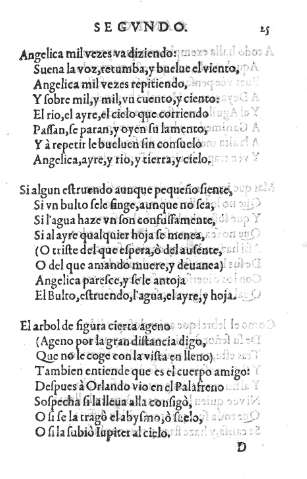 SEGVNDO. 25
Angelica mil vezes va diziendo:
Suena la voz, retumba, y buelue el viento,
Angelica mil vezes repitiendo,
Y sobre mil, y mil, vn cuento, y ciento:
El rio, el ayre, el cielo que corriendo
Passan, se paran, y oyen su lamento,
Y à repetir le bueluen sin consuelo
Angelica, ayre, y rio, y tierra, y cielo.
Si algun estruendo aunque pequeño siente,
Si vn bulto se le finge, aunque no sea,
Si l'agua haze vn son confussamente,
Si al ayre qualquier hoja se menea,
(O triste del que espera, ò del ausente,
O del que amando muere, y deuanea)
Angelica paresce, y se le antoja
El Bulto, estruendo, l'agua, el ayre, y hoja.
El arbol de figura cierta ágeno
(Ageno por la gran distancia digo,
Que no le coge con la vista en lleno)
Tambien entiende que es el cuerpo amigo:
Despues à Orlando vio en el Palafreno
Sospecha si la lleua alla consigò,
O si se la tragò el abysmo, ò suelo,
O si la subiò Iupiter al cielo.
D